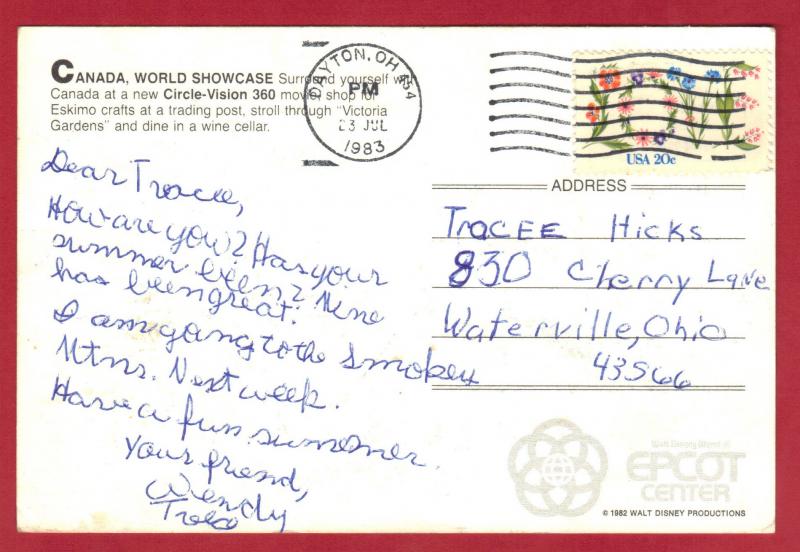 CANADA, WORLD SHOWCASE Surround yourself with
Canada at a new Circle-Vision 360 movie, shop for
Eskimo crafts at a trading post, stroll through "Victoria
Gardens" and dine in a wine cellar.
DAYTON, OH 454
PM
23 JUL
1983
USA 20c
Dear Tracee,
How are you? Has your
summer been? Mine
has been great.
I am going to the Smokey
Mtns. Next week.
Have a fun summer.
Your friend,
Wendy
ADDRESS
TRACEE Hicks
830 Cherry Lane
Waterville, Ohio
43566
Walt Disney World
EPCOT
CENTER
© 1982 WALT DISNEY PRODUCTIONS